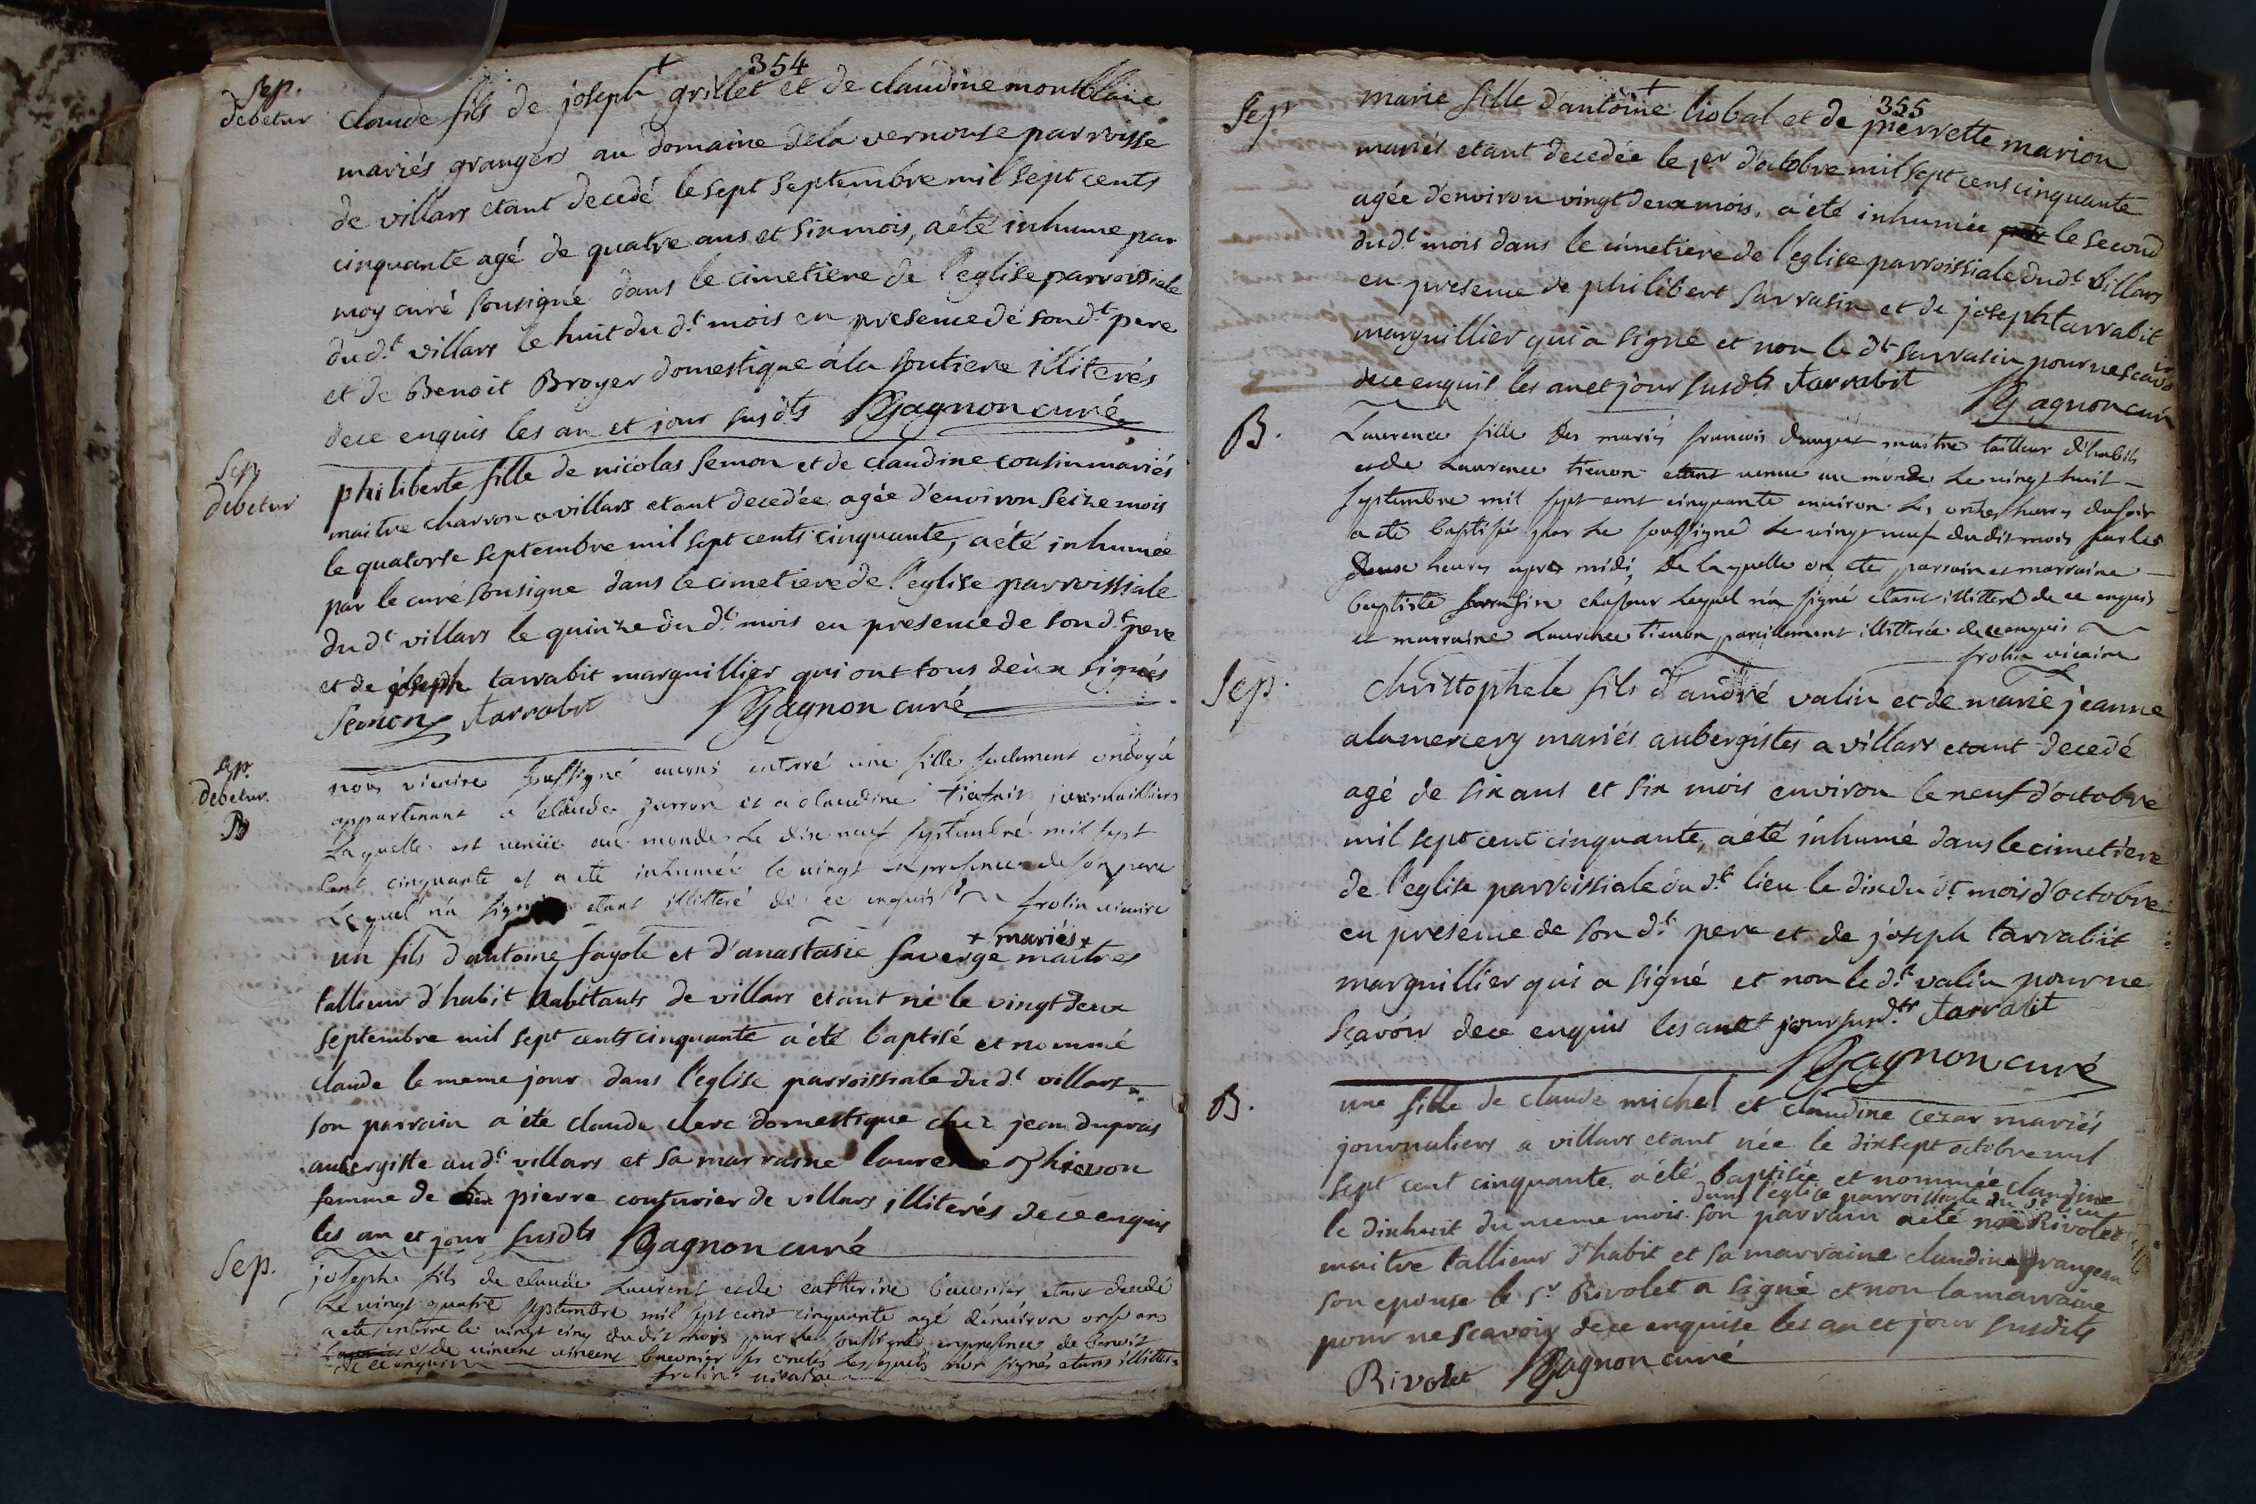 354
Sep.
debetur
claude fils de joseph grillet et de claudine montblanc
mariés grangers au domaine dela vernouse parroisse
de villars etant decedé le sept septembre mil sept cents
cinquante agé de quatre ans et six mois, a été inhume par
moy curé sousigné dans le cimetiere de l'eglise parroissiale
du d.t villars le huit du d.t mois en presence de son d.t pere
et de Benoit Broyer domestique a la soutiere illiterés
de ce enquis les an et jour susd.ts Gagnon curé
Sep
debetur
philiberte fille de nicolas semon et de claudine cousin mariés
maitre charron a villars etant decedée agée d'environ seize mois
le quatorse septembre mil sept cents cinquante, a été inhumée
par le curé sousigne dans le cimetiere de l'eglise parroissiale
du d.t villars le quinze du d.t mois en presence de son d.t pere
et de joseph tarrabit marguillier qui ont tous deux signés
Semon Tarrabit Gagnon curé
Sep.
debetur.
B
nous vicaire soussigné avons enterré une fille seulement ondoyé
appartenant a claude et a claudine
laquelle est venüe au monde le dix neuf septembre mil sept
cent cinquante et a été inhumée le vingt en presence de son pere
lequel n'a signé etant illitteré de ce enquis frolin vicaire
un fils d'antoine fayole et d'anastasie faverge + mariés + maitres
tallieur d'habit habitants de villars etant né le vingt deux
septembre mil sept cents cinquante a été baptisé et nommé
claude le meme jour dans l'eglise parroissiale du d.t villars
son parrain a été claude clerc domestique chez jean duprais
aubergiste au d.t villars et sa marraine laurence Thievon
femme de pierre couturier de villars illiterés de ce enquis
les an et jour susd.ts Gagnon curé
Sep.
joseph fils de claude Laurent et de catherine etant decedé
le vingt quatre septembre mil sept cent cinquante agé d'environ onse ans
a été enterré le vingt cinq dudit mois par le soussigné en presence de Benoit
et de vincent ses oncles lesquels n'ont signés etant illitterés
de ce enquis frolin vicaire
355
Sep
marie fille d'antoine liobal et de pierrette marion
mariés etant decedée le 1er d'octobre mil sept cens cinquante
agée d'environ vingt deux mois, a été inhumée le second
du d.t mois dans le cimetiere de l'eglise parroissiale du d.t villars
en presence de philibert sarrasin et de joseph tarrabit
marguillier qui a signé et non le d.t sarrasin pour ne scavoir
de ce enquis les an et jour susd.ts Tarrabit
Gagnon curé
B.
Laurence fille des mariés francois maitre tailleur d'habits
et de Laurence tievon etant venue au monde le vingt huit
septembre mil sept cent cinquante environ les onze heures du soir
a été baptisé par le soussigné le vingt neuf dudit mois sur les
deux heures apres midi, de laquelle on été parrain et marraine
baptiste sarrasin chasseur lequel n'a signé etant illitteré de ce enquis
et marraine Laurence tievon pareillement illitterée de ce enquis
frolin vicaire
Sep.
christophele fils d'andré valin et de marie jeanne
alamercery mariés aubergistes a villars etant decedé
agé de six ans et six mois environ le neuf d'octobre
mil sept cent cinquante, a été inhumé dans le cimetiere
de l'eglise parroissiale du d.t lieu le dix du d.t mois d'octobre
en presence de son d.t pere et de joseph tarrabit
marguillier qui a signé et non le d.t valin pour ne
scavoir de ce enquis les an et jour susd.ts Tarrabit
Gagnon curé
B.
une fille de claude michel et claudine cezar mariés
journaliers a villars etant née le dixsept octobre mil
sept cent cinquante a été baptisée et nommée claudine
dans l'eglise parroissiale du d.t lieu
le dixhuit du meme mois. son parrain a été Rivolet
maitre tallieur d'habit et sa marraine claudine grangean
son epouse le s.r Rivolet a signé et non la marraine
pour ne scavoir de ce enquise les an et jour susdits
Rivolet Gagnon curé